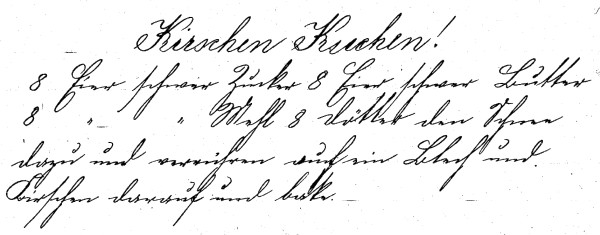 Kirschen Kuchen!
8 Eier schwer Zucker 8 Eier schwer Butter
8 " " Mehl 8 Dötter den Schnee
dazu und verrühren auf ein Blech und
Kirschen darauf und bake.